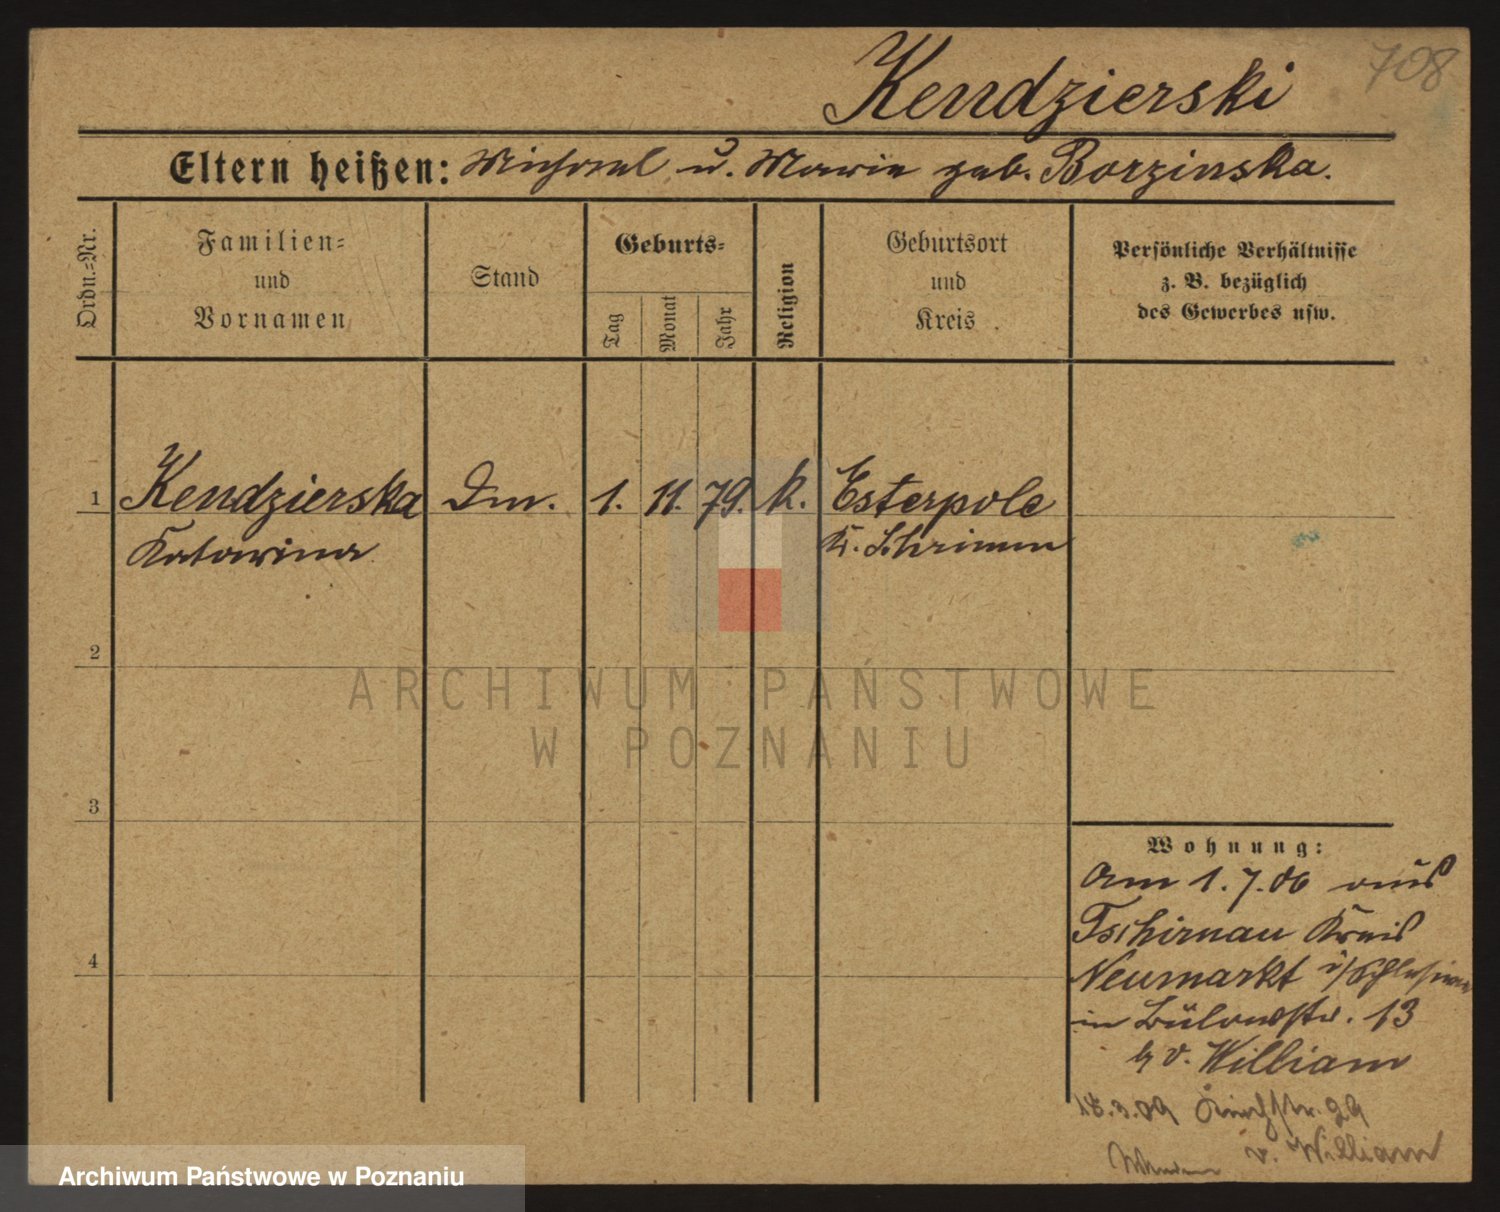 708
Kendzierski
Eltern heißen: Michael u. Marie geb. Borzinska.
Ordn.=Nr.
Familien=
und
Vornamen
Stand
Geburts=
Tag
Monat
Jahr
Religion
Geburtsort
und
Kreis
Persönliche Verhältnisse
z. B. bezüglich
des Gewerbes usw.
1 Kendzierska Dm. 1. 11. 79. k. Esterpole
Katarina K. Schrimm
2
3
4
Wohnung:
Am 1.7.06 aus
Tschirnau Kreis
Neumarkt i/Schlesien
in Bülowstr. 13
b/ v. William
18.3.09 29
v. William
ARCHIWUM PAŃSTWOWE
W POZNANIU
Archiwum Państwowe w Poznaniu